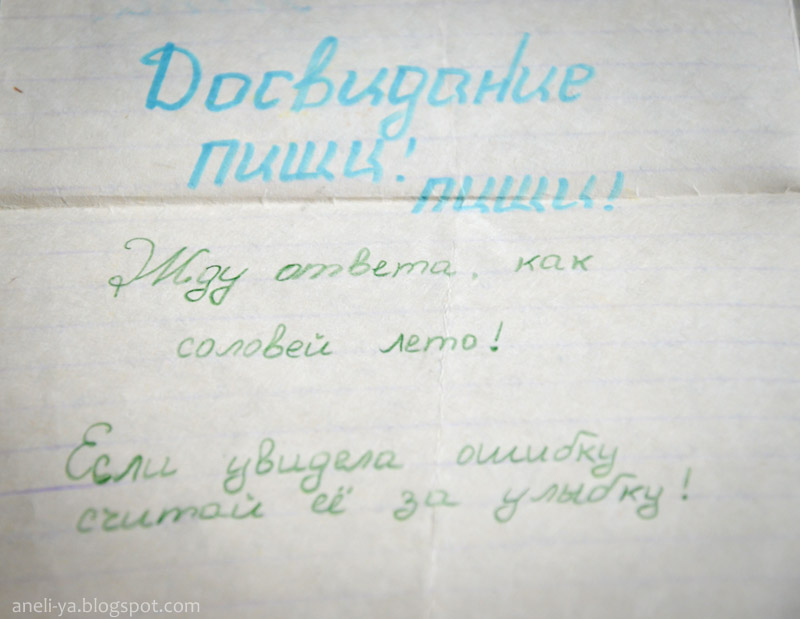 Досвидание
пиши!
пиши!
Жду ответа, как
соловей лето!
Если увидела ошибку
считай её за улыбку!
aneli-ya.blogspot.com